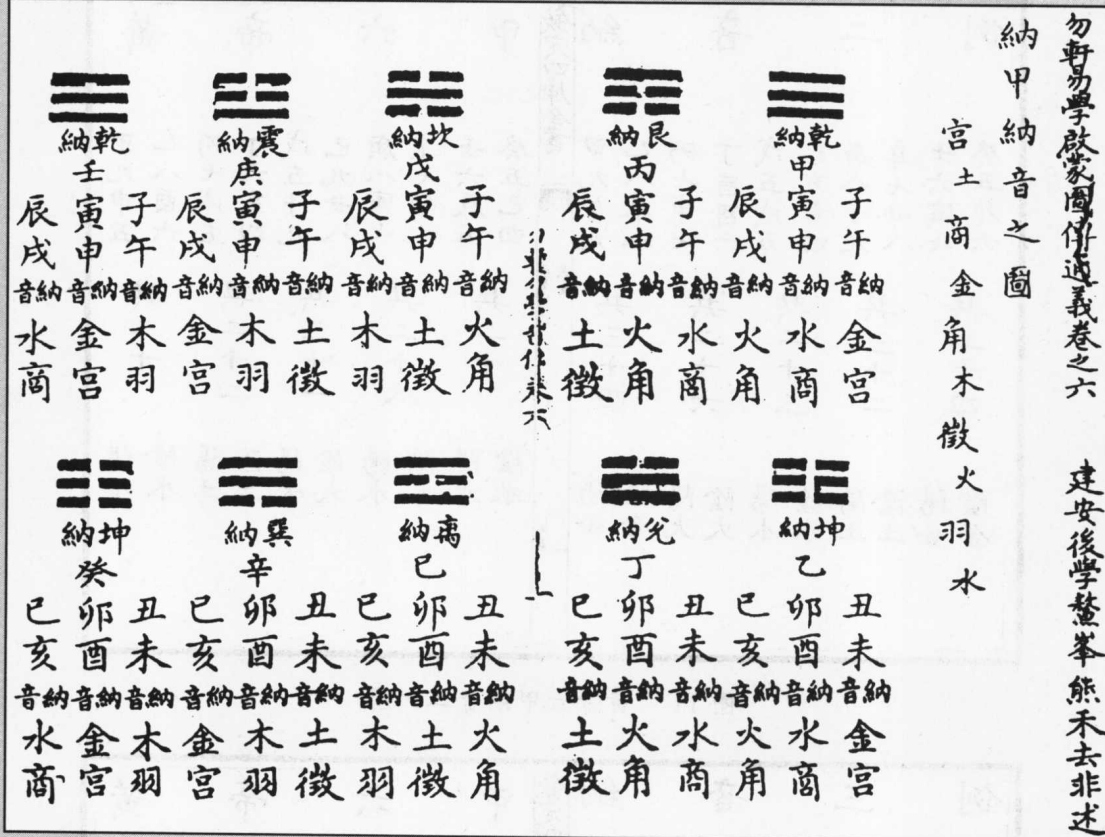 勿軒易學啟蒙圖傳通義卷之六 建安後學鰲峯熊禾去非述
納甲納音之圖
宮土商金角木徵火羽水
乾納甲
子午納音金宮
寅申納音水商
辰戌納音火角
艮納丙
子午納音水商
寅申納音火角
辰戌納音土徵
坎納戊
子午納音火角
寅申納音土徵
辰戌納音木羽
震納庚
子午納音土徵
寅申納音木羽
辰戌納音金宮
乾納壬
子午納音木羽
寅申納音金宮
辰戌納音水商
坤納乙
丑未納音金宮
卯酉納音水商
巳亥納音火角
兌納丁
丑未納音水商
卯酉納音火角
巳亥納音土徵
离納己
丑未納音火角
卯酉納音土徵
巳亥納音木羽
巽納辛
丑未納音土徵
卯酉納音木羽
巳亥納音金宮
坤納癸
丑未納音木羽
卯酉納音金宮
巳亥納音水商